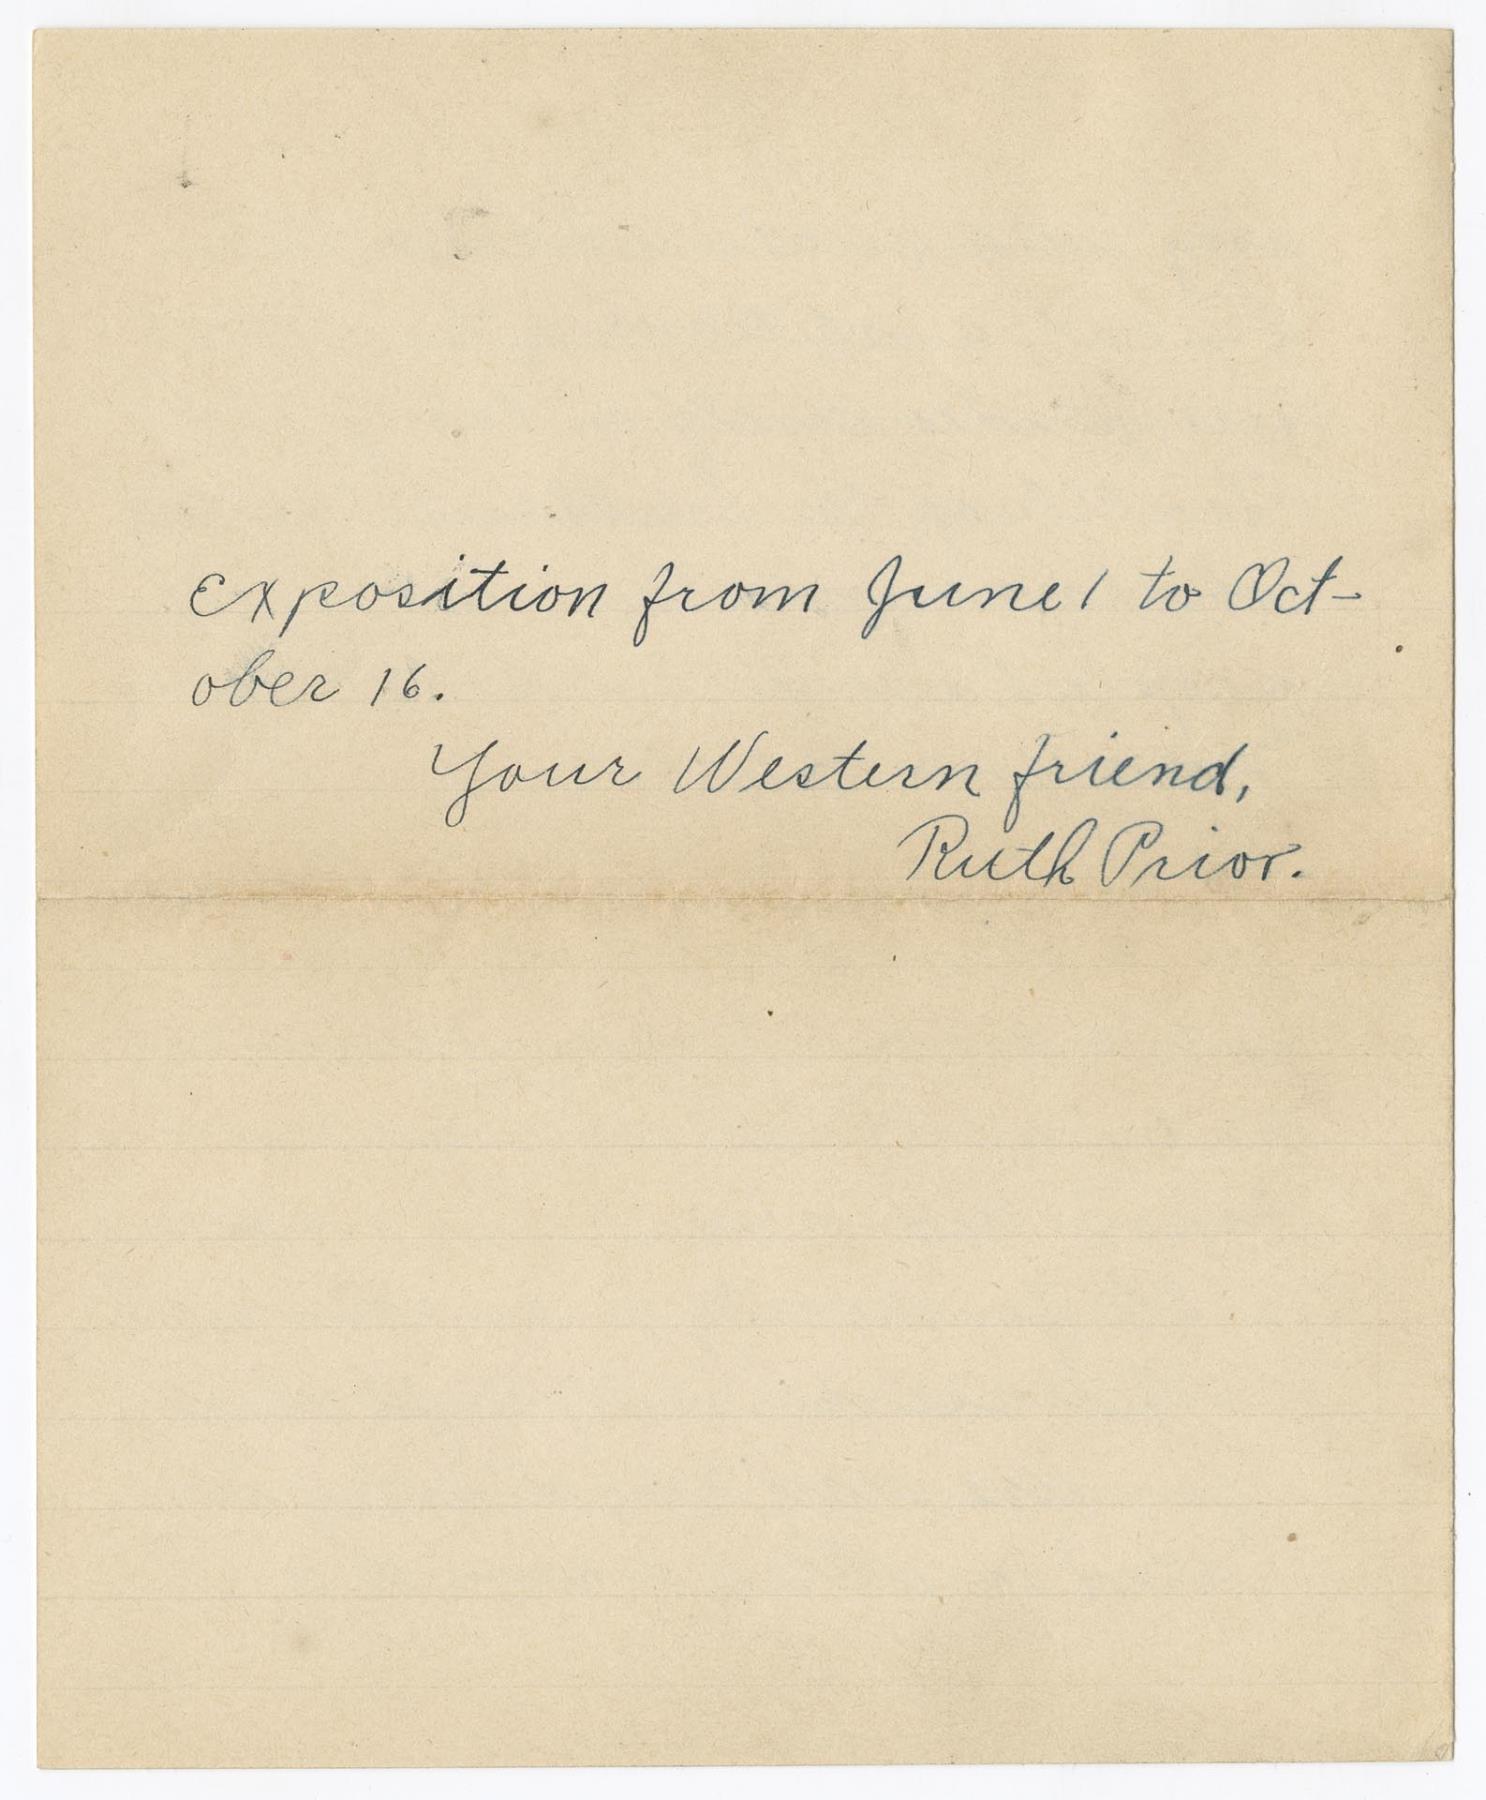 exposition from June 1 to Oct-
ober 16.
Your Western friend,
Ruth Prior.